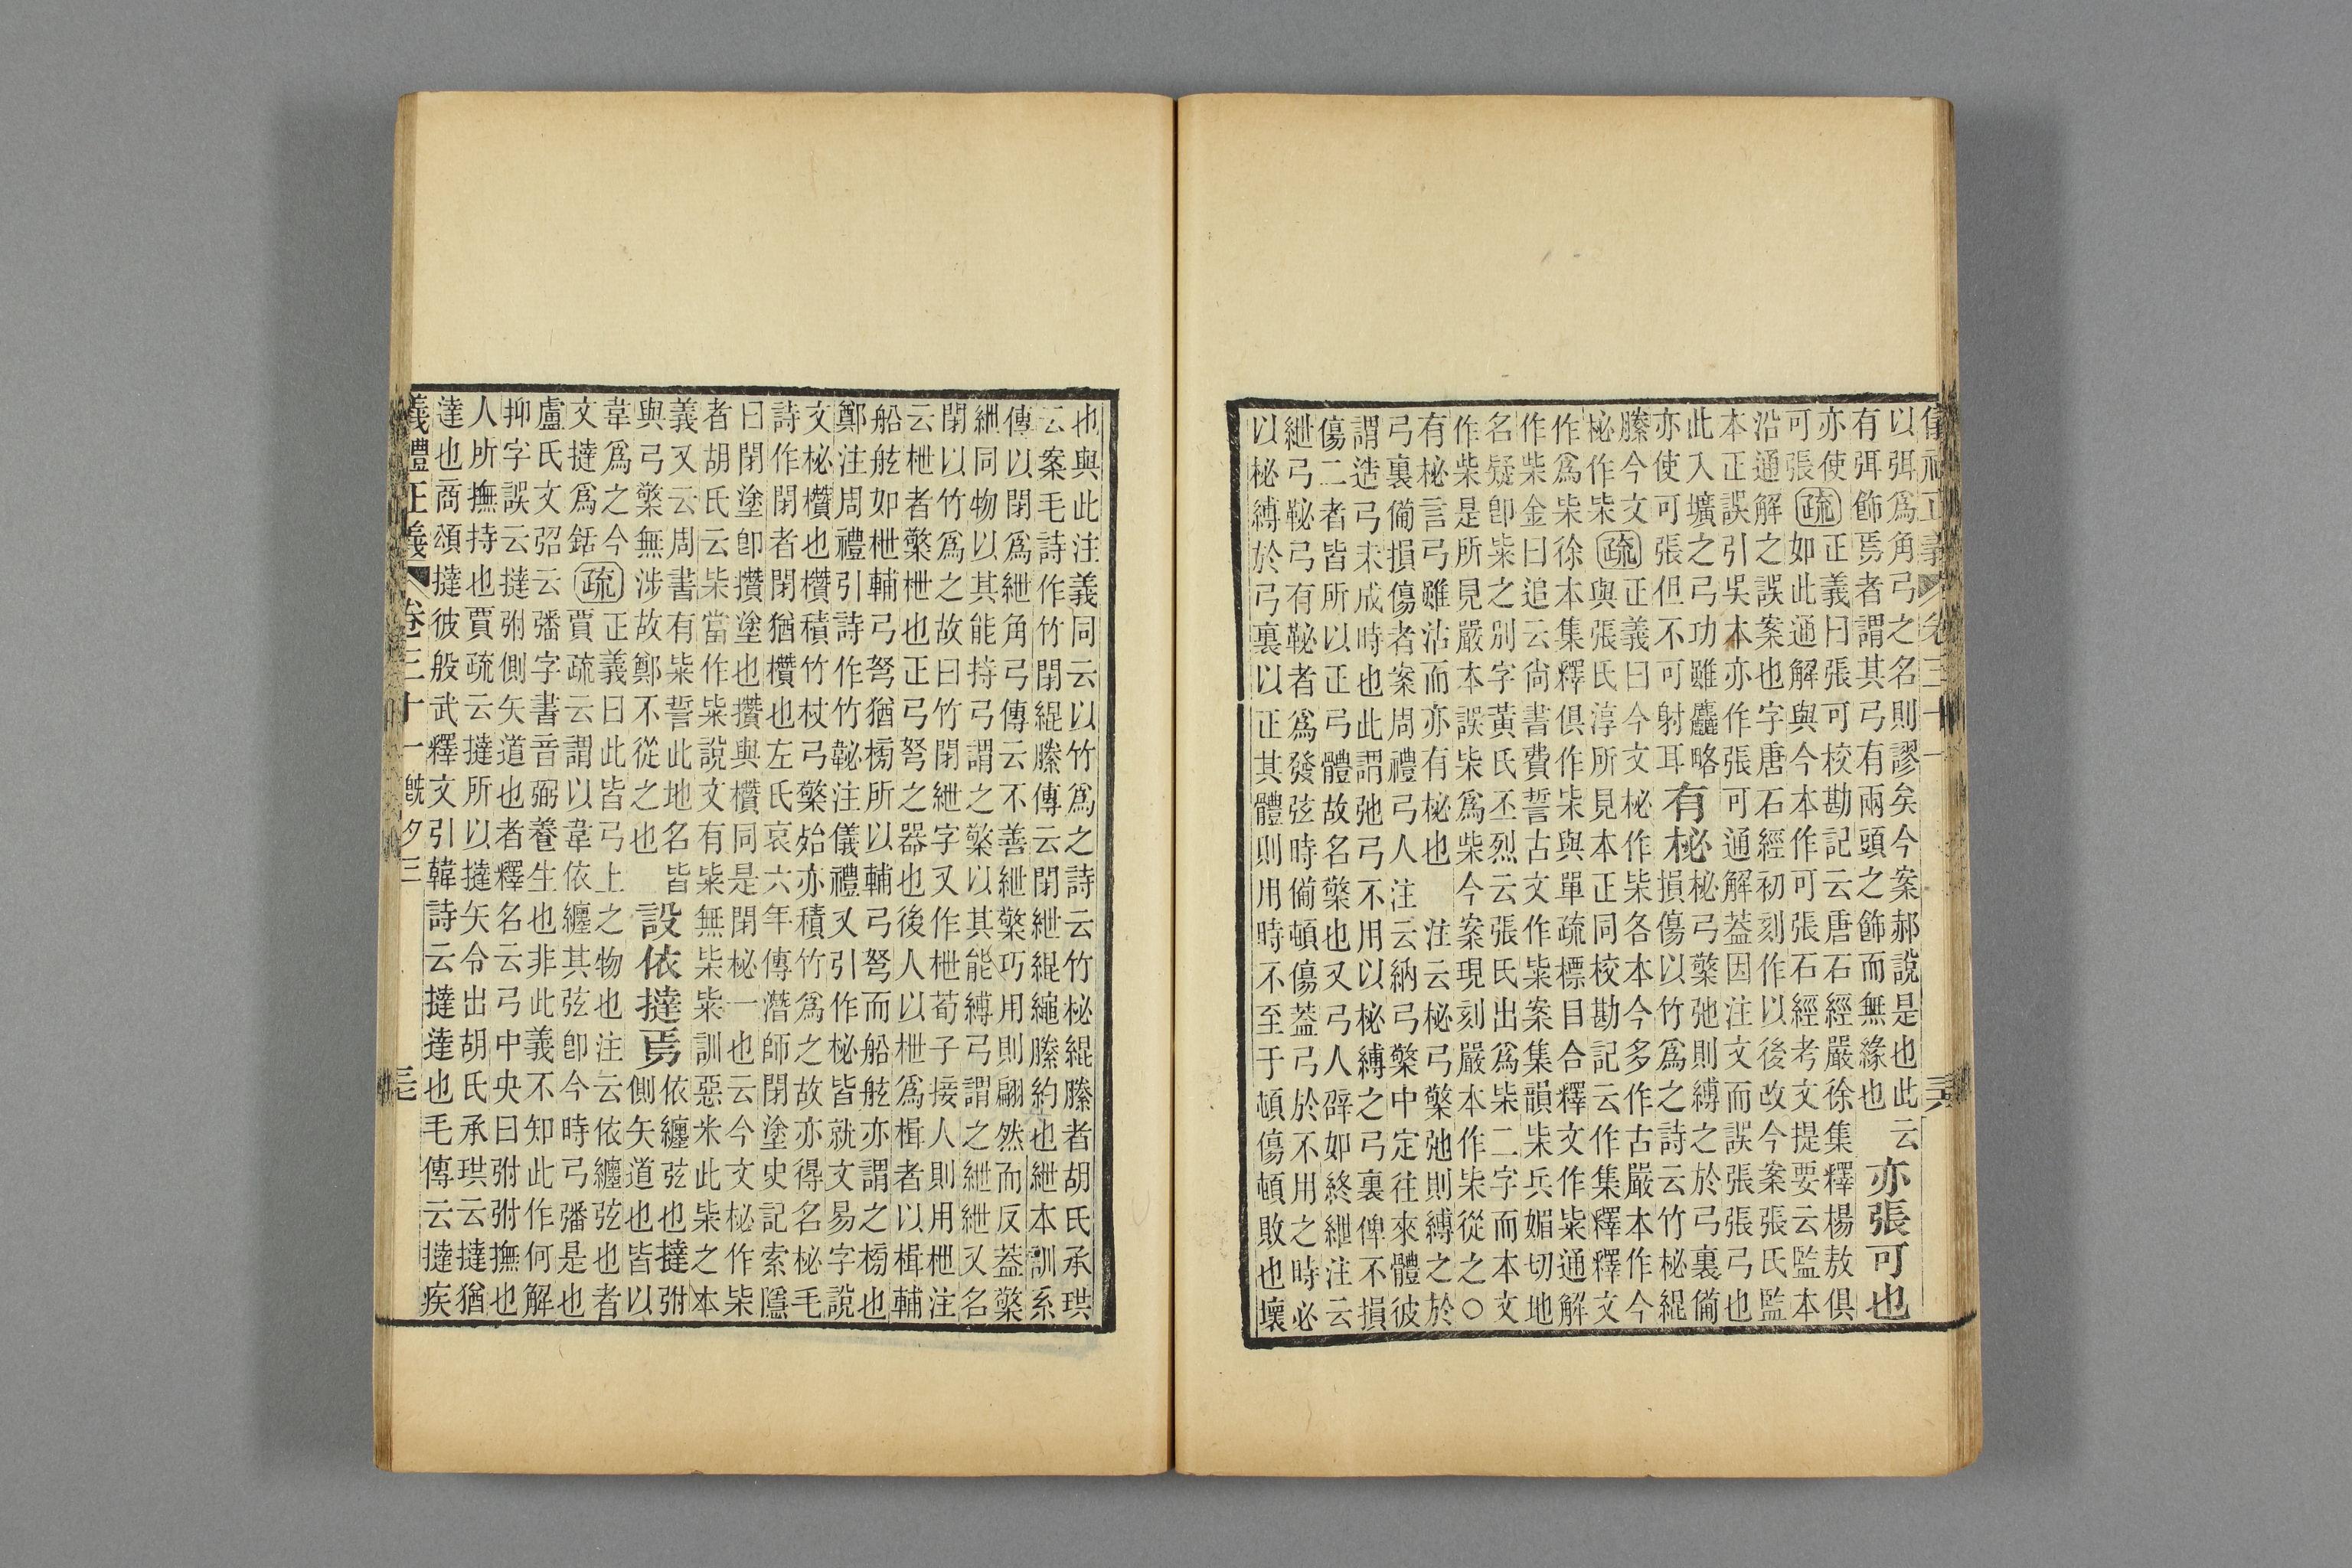 儀禮正義 卷三十一 三六
以弭爲角弓之名則謬矣今案郝說是也此云
有弭飾焉者謂其弓有兩頭之飾而無緣也
亦張可也
亦使
可張
疏
正義曰張可校勘記云唐石經嚴徐集釋楊敖俱
如此通解與今本作可張石經考文提要云監本
沿通解之誤案也字唐石經初刻作以後改今案張氏監
本正誤引吳本亦作張可通解蓋因注文而誤張張弓也
此入壙之弓功雖麤略
亦使可張但不可射耳
有柲
柲弓檠弛則縛之於弓裏備
損傷以竹爲之詩云竹柲緄
縢今文
柲作枈
疏
正義曰今文柲作枈各本今多作古嚴本作今
與張氏淳所見本正同校勘記云作集釋釋文
作爲枈徐本集釋俱作枈與單疏標目合釋文作粊通解
作柴金曰追云尚書費誓古文作粊案集韻枈兵媚切地
名疑卽粊之別字黃氏丕烈云張氏出爲枈二字而本文
作柴是所見嚴本誤枈爲柴今案現刻嚴本作枈從之○
有柲言弓雖沽而亦有柲也 注云柲弓檠弛則縛之於
弓裏備損傷者案周禮弓人注云納弓檠中定往來體彼
謂造弓未成時也此謂弛弓不用以柲縛之弓裏俾不損
傷二者皆所以正弓體故名檠也又弓人辟如終紲注云
紲弓䪐弓有䪐者爲發弦時備頓傷蓋弓於不用之時必
以柲縛於弓裏以正其體則用時不至于頓傷頓敗也壞
也與此注義同云以竹爲之詩云竹柲緄縢者胡氏承珙
云案毛詩作竹閉緄縢傳云閉紲緄繩縢約也紲本訓系
傳以閉爲紲角弓傳云不善紲檠巧用則翩然而反蓋檠
紲同物以其能持弓謂之檠以其能縛弓謂之紲紲又名
閉以竹爲之故曰竹閉紲字又作枻荀子接人則用枻注
云枻者檠枻也正弓弩之器也後人以枻爲楫者以楫輔
船舷如枻輔弓弩猶榜所以輔弓弩而船舷亦謂之榜也
鄭注周禮引詩作竹䪐注儀禮又引作柲皆就文易字說
文柲欑也欑積竹杖弓檠殆亦積竹爲之故亦得名柲毛
詩作閉者閉猶欑也左氏哀六年傳潛師閉塗史記索隱
曰閉塗卽攢塗也攢與欑同是閉柲一也云今文柲作枈
者胡氏云枈當作粊說文有粊無枈枈訓惡米此枈之本
義又云周書有粊誓此地名皆
與弓檠無涉故鄭不從之也
設依撻焉
依纏弦也撻弣
側矢道也皆以
韋爲之今
文撻爲銛
疏
正義曰此皆弓上之物也注云依纏弦也者
賈疏云謂以韋依纏其弦卽今時弓𢐲是也
盧氏文弨云𢐲字書音弼養生也非此義不知此作何解
抑字誤云撻弣側矢道也者釋名云弓中央曰弣弣撫也
人所撫持也賈疏云撻所以撻矢令出胡氏承珙云撻猶
達也商頌撻彼殷武釋文引韓詩云撻達也毛傳云撻疾
義禮正義 卷三十一 旣夕三 三七